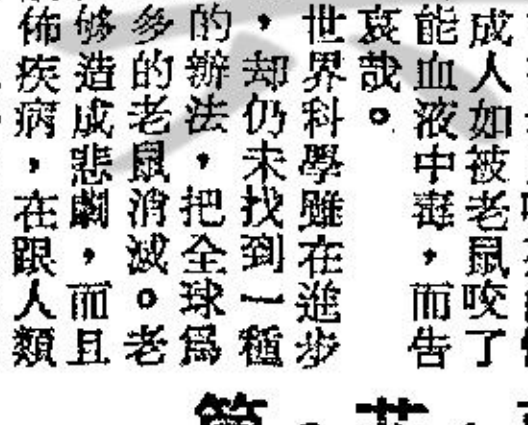 成人如被老鼠咬了
能血液中毒，而告
哀哉。
世界科學雖在進步
，却仍未找到一種
的辦法，把全球爲
多的老鼠消滅。老
够造成悲劇，而且
佈疾病，在跟人類